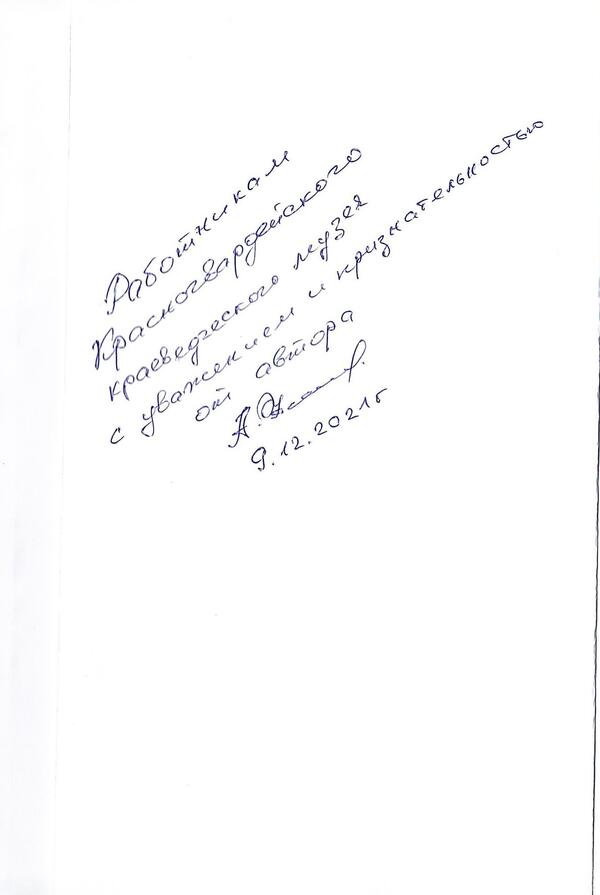 Работникам
Красногвардейского
краеведческого музея
с уважением и признательностью
от автора
А.
9.12.2021г